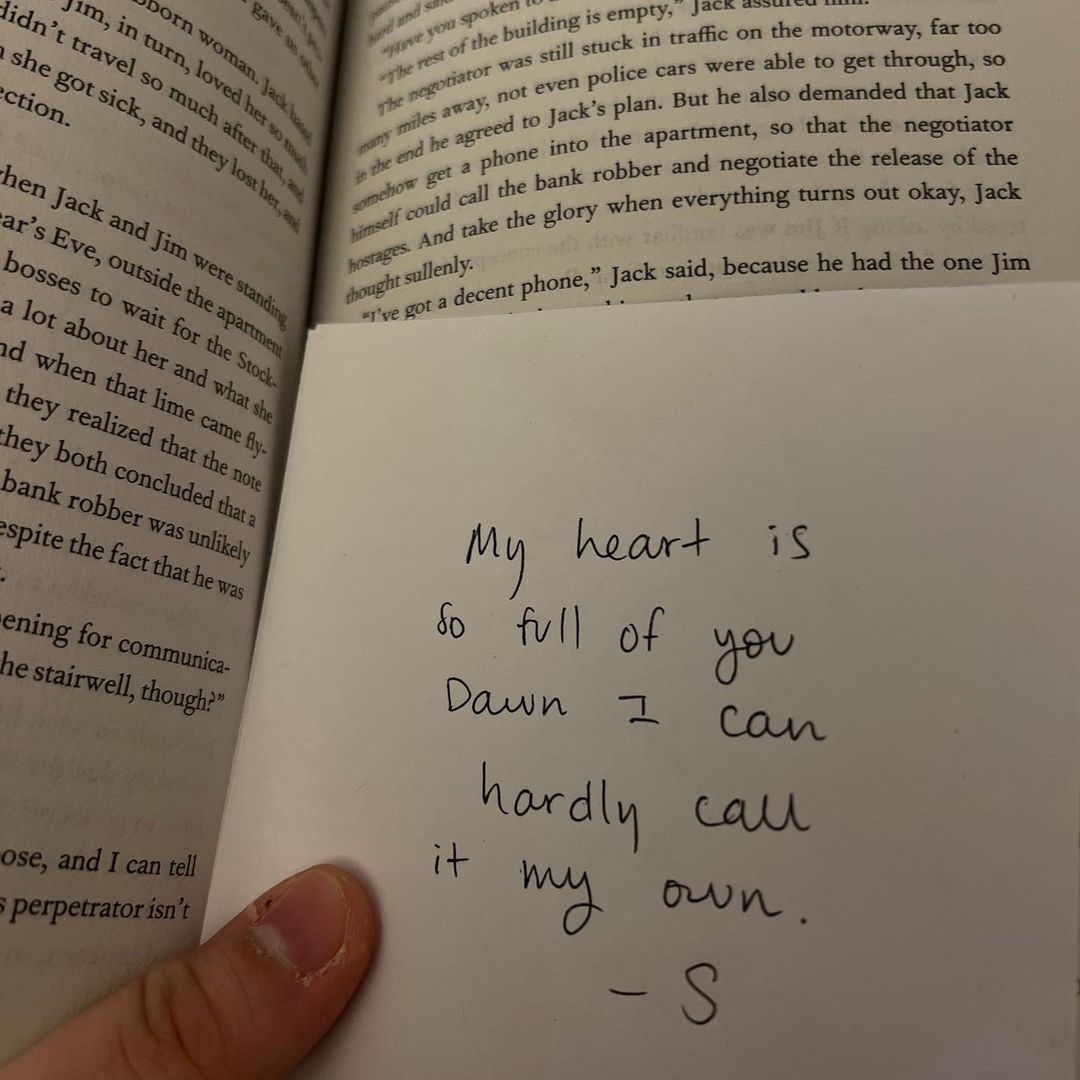 born woman. Jack hated
Jim, in turn, loved her so much
didn't travel so much after that, and
she got sick, and they lost her, and
ection.
hen Jack and Jim were standing
ar's Eve, outside the apartment
bosses to wait for the Stock-
a lot about her and what she
nd when that lime came fly-
they realized that the note
they both concluded that a
bank robber was unlikely
espite the fact that he was
ening for communica-
he stairwell, though?"
ose, and I can tell
s perpetrator isn't
"Have you spoken to
"The rest of the building is empty," Jack assured him.
The negotiator was still stuck in traffic on the motorway, far too
many miles away, not even police cars were able to get through, so
in the end he agreed to Jack's plan. But he also demanded that Jack
somehow get a phone into the apartment, so that the negotiator
himself could call the bank robber and negotiate the release of the
hostages. And take the glory when everything turns out okay, Jack
thought sullenly.
"I've got a decent phone," Jack said, because he had the one Jim
My heart is
so full of you
Dawn I can
hardly call
it my own.
- S